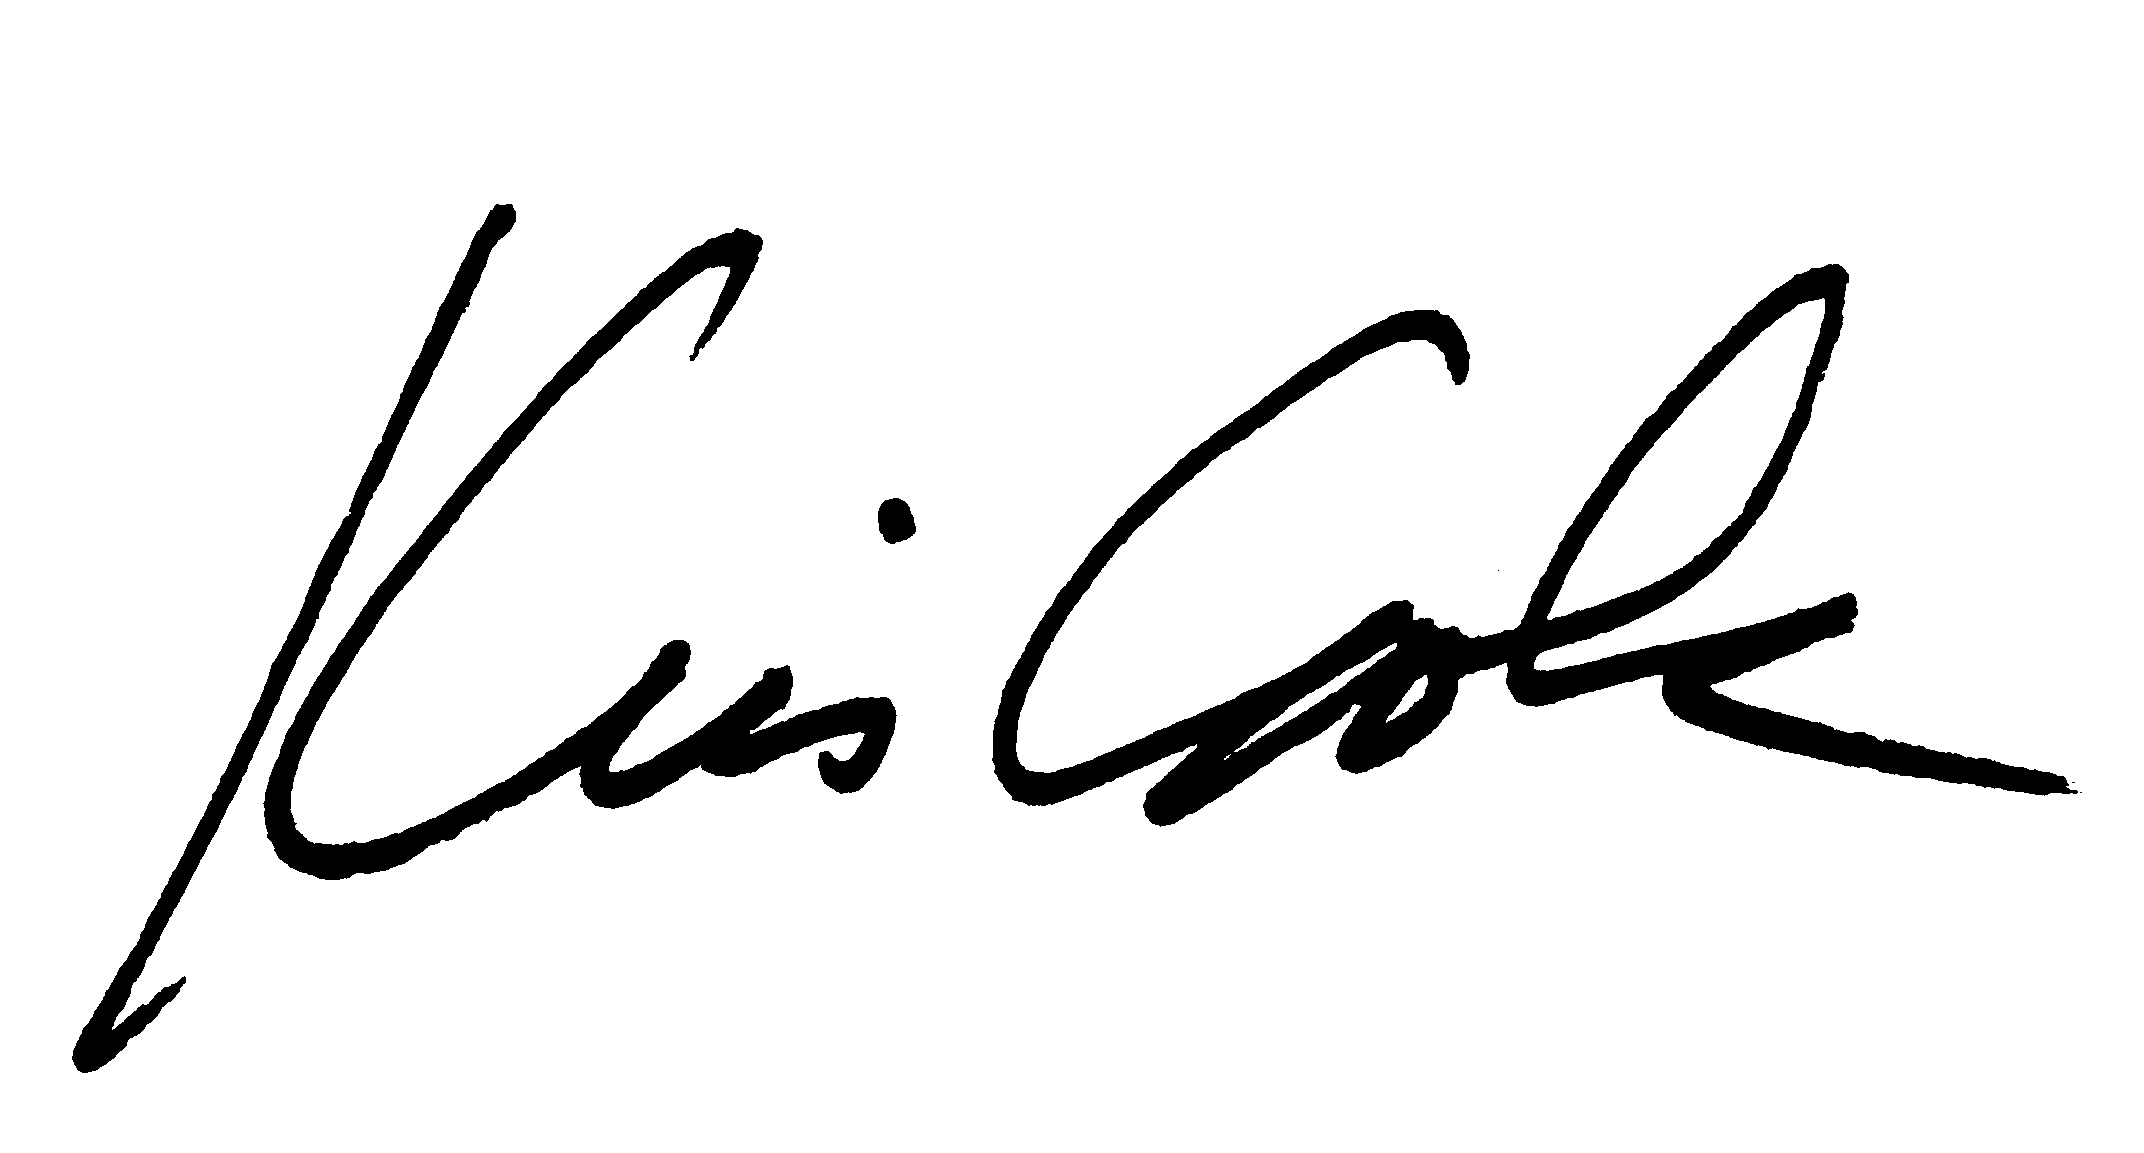 Kris Cole